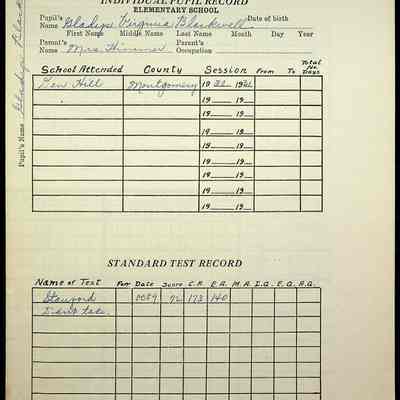 INDIVIDUAL PUPIL RECORD
ELEMENTARY SCHOOL
Pupil's Name Gladys Virginia Blackwell Date of birth
First Name Middle Name Last Name Month Day Year
Parent's Name Mrs. Parent's Occupation
Pupil's Name Gladys
School Attended County Session From To Total No. Days
Hill Montgomery 19 19
19 19
19 19
19 19
19 19
19 19
19 19
19 19
19 19
STANDARD TEST RECORD
Name of Test Form Date Score C.A. E.A. M.A. I.Q. E.Q. A.Q.
Stanford Oct 9 92 173 140
Didn't take